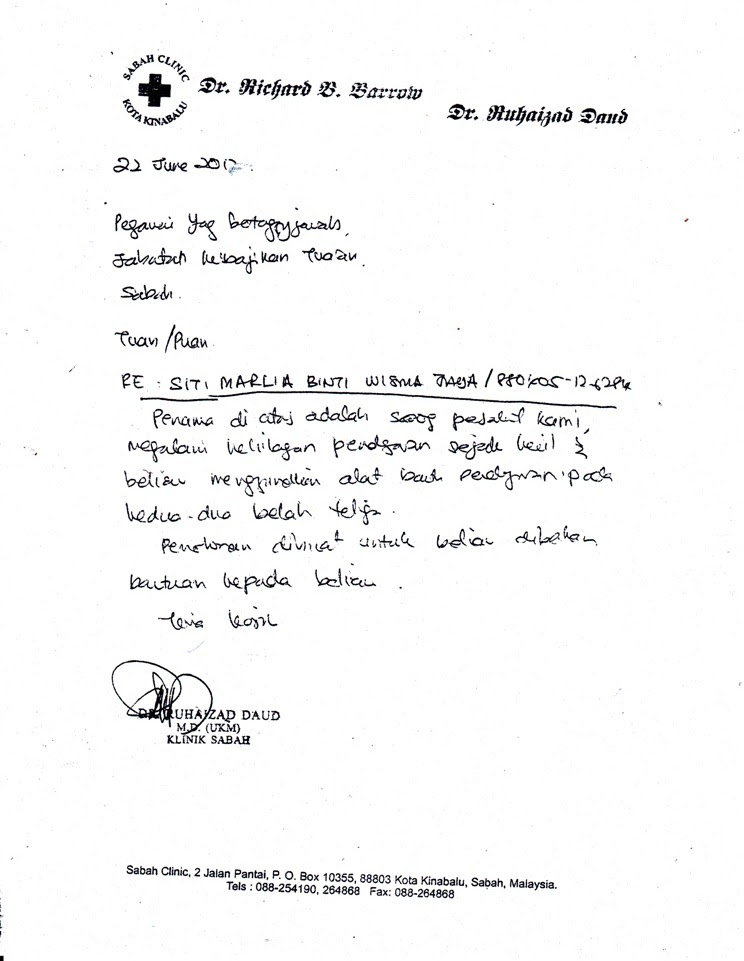 SABAH CLINIC
KOTA KINABALU
Dr. Richard B. Barrow
Dr. Ruhaizad Daud
22 June 2012.
Pegawai Yag
Jabatan Kebajikan
Sabah.
Tuan/Puan
RE : SITI MARLIA BINTI WISMA
Penama di atas adalah seorg pesakit kami,
megalami kehilagan pendgaran sejak kecil &
beliau menggunakan alat bantu pendgaran pada
kedua-dua belah teliga.
Pertolongan diminta untuk beliau diberikan
bantuan kepada beliau.
Terima kasih
DR. RUHAIZAD DAUD
M.D. (UKM)
KLINIK SABAH
Sabah Clinic, 2 Jalan Pantai, P. O. Box 10355, 88803 Kota Kinabalu, Sabah, Malaysia.
Tels : 088-254190, 264868 Fax: 088-264868